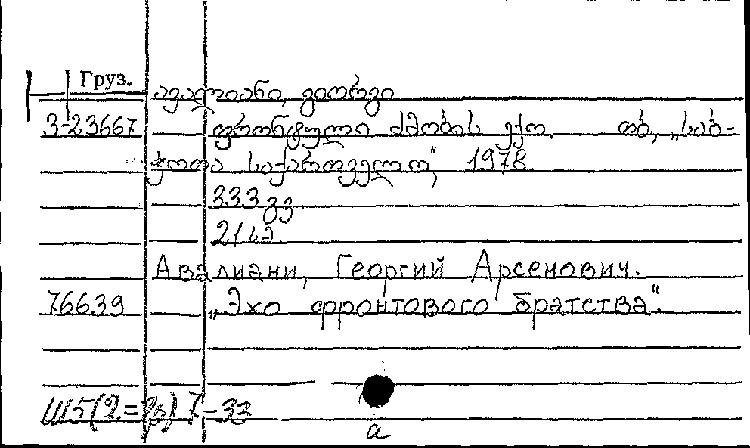 Груз. ავალიანი, გიორგი
3-23667 ფრონტული ძმობის ექო. თბ, „საბ-
ჭოთა საქართველო“, 1978
333 გვ
Авалиани, Георгий Арсенович.
76639 „Эхо фронтового братства“.
а